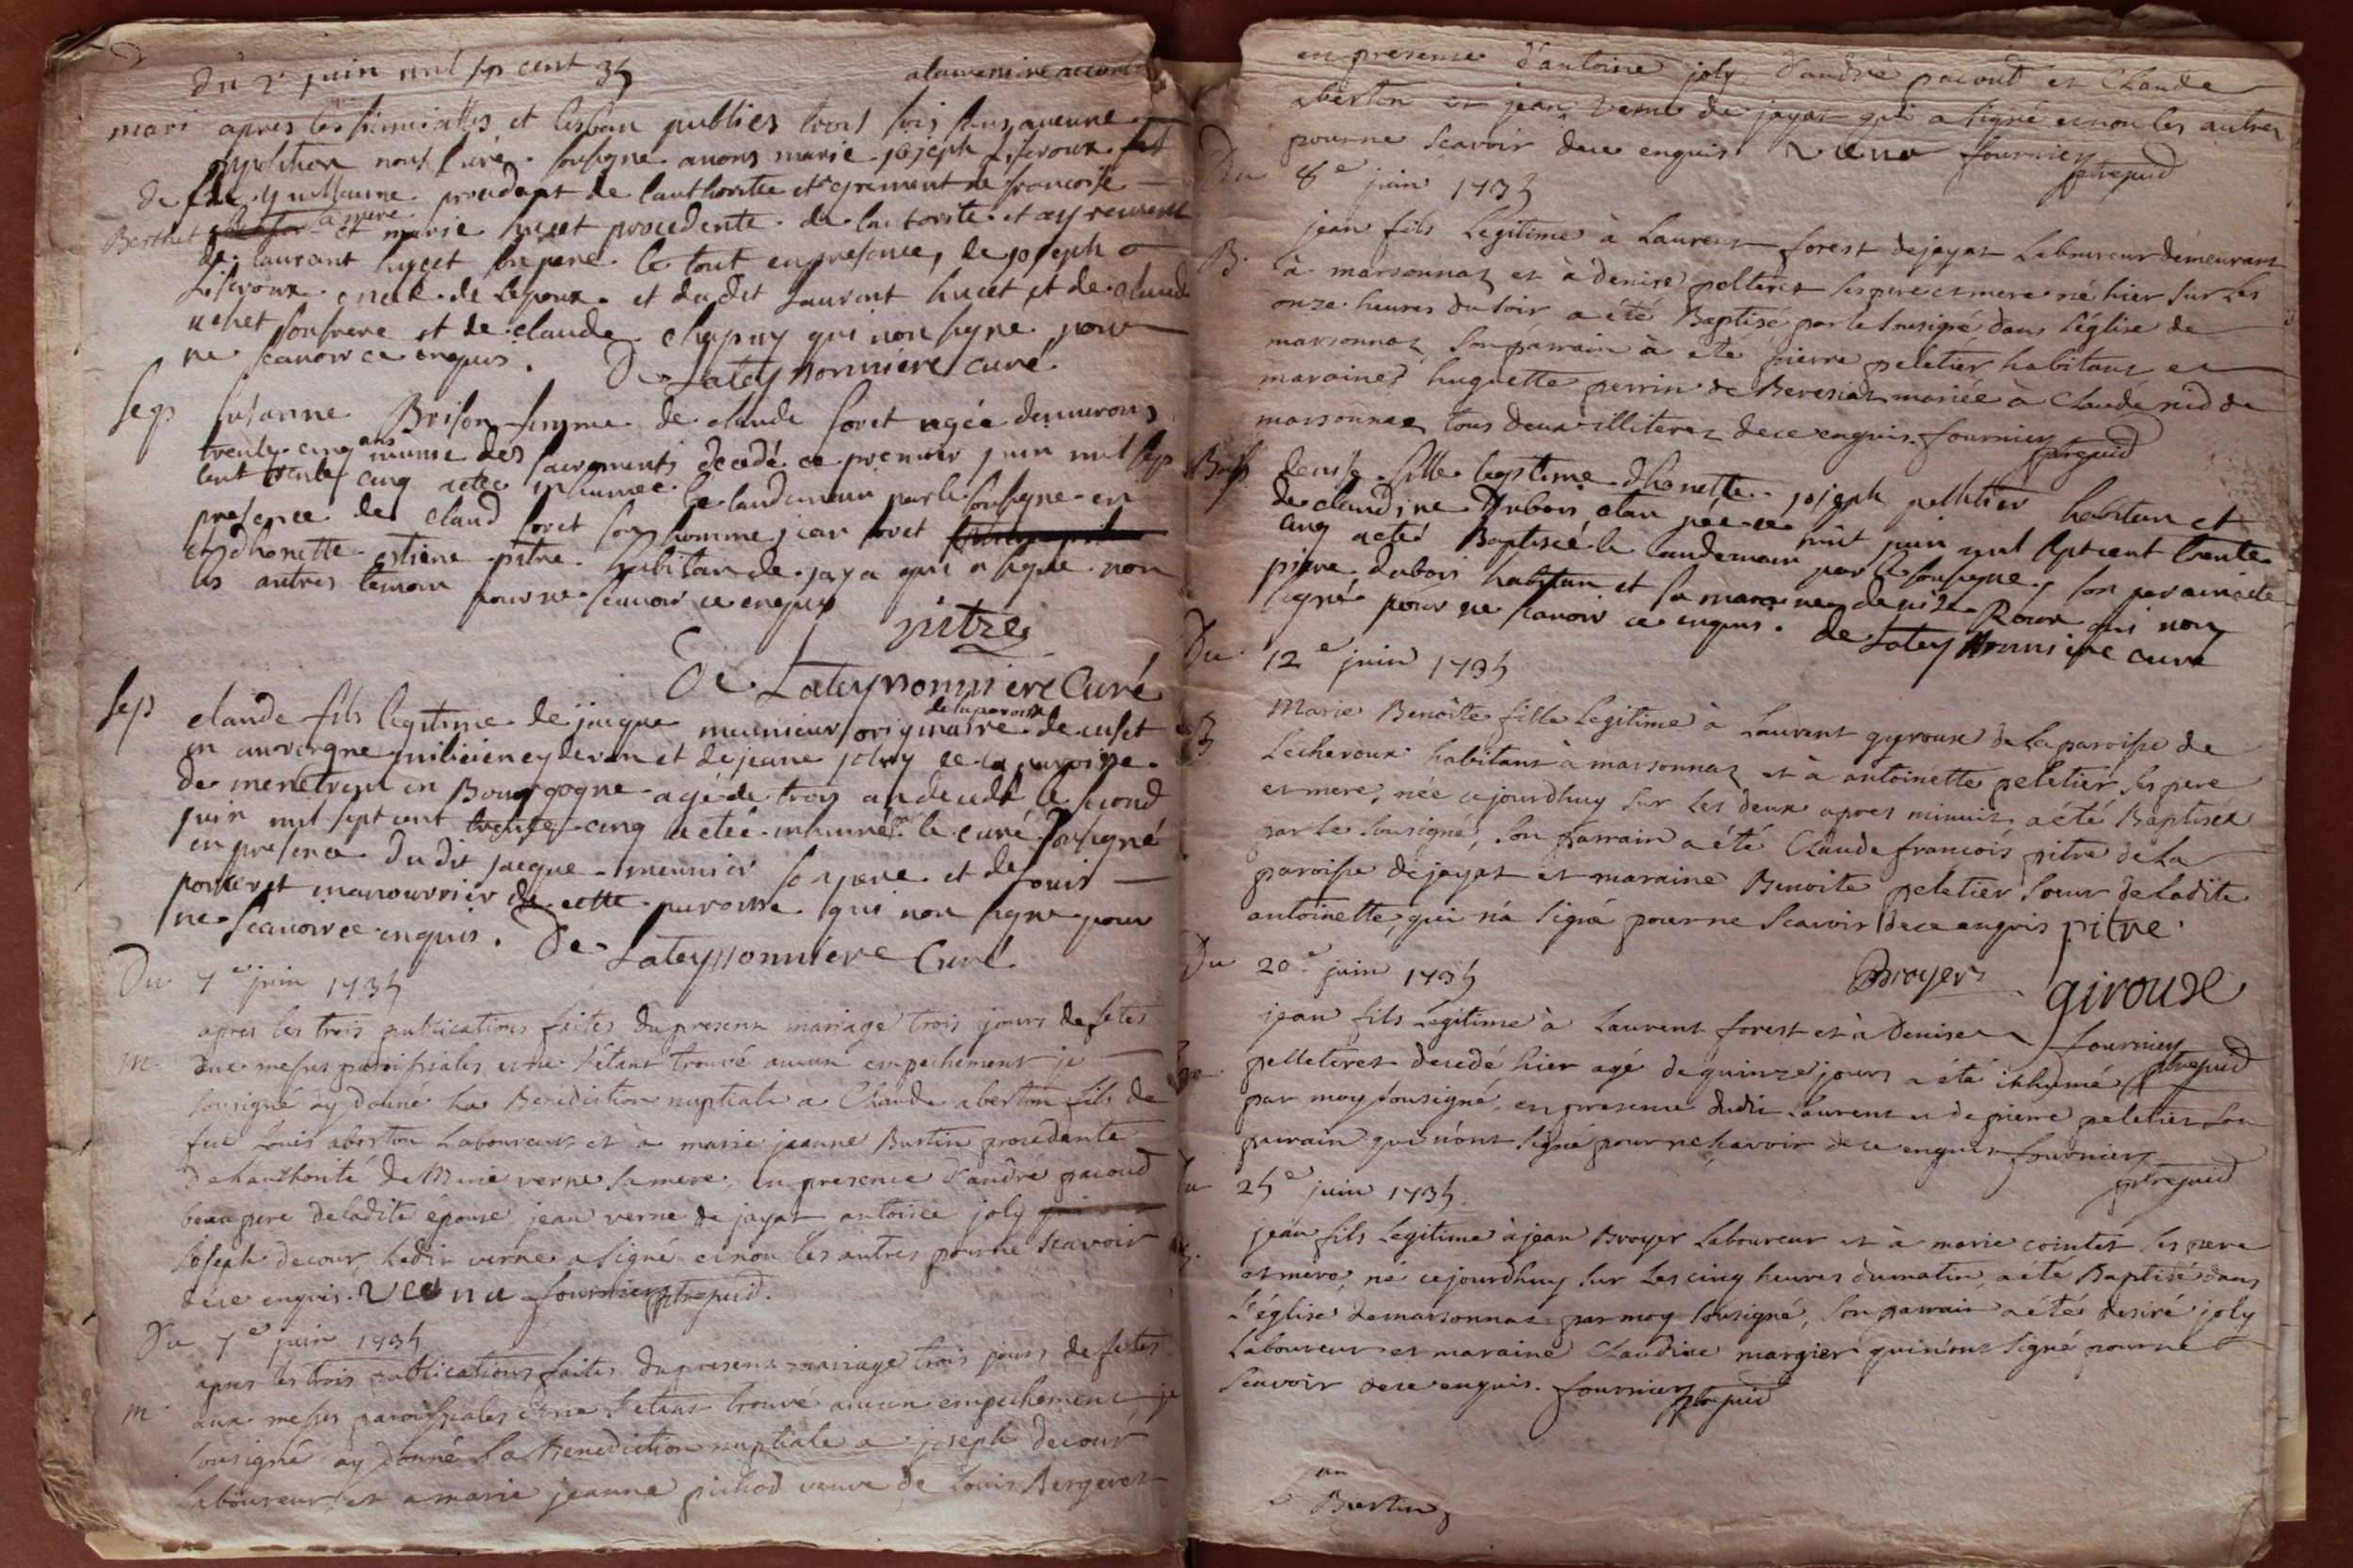 Du 2e juin mil sept cent 35
mari apres les fiancialles et les ban publies trois fois sans aucune
opposition nous curé soussigne avons marie joseph
de feu guillaume procedant de l'authoritee et agrement de francoise
Berthet sa mere et marie hucet procedente de lautorite et agrement
de laurant hucet son pere le tout en presence de joseph
oncle de lepoux et du dit laurant hucet et de claude
hucet son frere et de claude chapuy qui non signé pour
ne scavoir ce enquis. De Lateyssonniere curé
Sep Susanne Brison femme de claude foret agée denviron
trente cinq ans munie des sacrements décédé ce premier juin mil sept
cent trente cinq a etee inhumee le landemain par le soussigne en
presence de claud foret son homme jean foret
et dhonette estiene pitre habitan de jaya qui a signe non
les autres temoin pour ne scavoir ce enquis
pitre
De Lateyssonniere Curé
Sep claude fils legitime de jacque meunieur originaire de la paroisse de cuset
en auvergne milicien et de jeanne joly de la paroisse
de menetreul en Bourgogne agé de trois an decedé le second
juin mil sept cent trente cinq a etee inhumé par le curé soussigné
en presence du dit jacque meunier son pere et de louis
manouvrier de cette paroisse qui non signe pour
ne scavoir ce enquis. De Lateyssonniere Curé
Du 7e juin 1735
apres les trois publications faites du present mariage trois jours de fetes
m. aux messes paroissiales et ne s'etant trouvé aucun empechement je
sousigné ay donné la Benediction nuptiale a Claude aberton fils de
feu Louis aberton Laboureur et à marie jeanne Bustin procedante
de l'authorité de Marie verne sa mere, en presence d'andré pacoud
beaupere de ladite épouse, jean verne de jayat antoine joly
Joseph decour, ledit verne a signé et non les autres pour ne scavoir
de ce enquis. Verne fournier ptre
Du 7e juin 1735
apres les trois publications faites du present mariage trois jours de fetes
m. aux messes paroissiales et ne s'etant trouvé aucun empechement je
sousigné ay donné la Benediction nuptiale a joseph decour
Laboureur et a marie jeanne pichod veuve de Louis Bergeret
en presence d'antoine joly d'andré pacoud et Claude
aberton et jean verne de jayat qui a signé et non les autres
pour ne scavoir de ce enquis. verne fournier ptre
Du 8e juin 1735
jean fils Legitime à Laurent forest de jayat Laboureur demeurant
B. à marsonnaz et à denise pelleteret ses pere et mere né hier sur les
onze heures du soir a été Baptisé par le sousigné dans l'église de
marsonnaz son parrain à été pierre peletier habitant et
maraine huguette perrin de Bereziat mariée à Claude nid de
marsonnaz tous deux illiterez de ce enquis. fournier ptre
Bap denise fille legitime dhonette joseph pelletier habitan et
de claudine Dubois etan née ce huit juin mil sept cent trente
cinq a eté Baptisée le landemain par le soussigne, son parain a ete
pierre dubois habitan et sa maraine denise Roux qui non
signé pour ne scavoir ce enquis. De Lateyssonniere curé
Du 12e juin 1735
Marie Benoîte fille Legitime à Laurent gyroux de la paroisse de
B Lecheroux habitant à marsonnaz et à antoinette peletier ses pere
et mere, née cejourdhuy sur les deux apres minuit a été Baptisée
par le sousigné, son parrain a été Claude francois pitre de la
paroisse de jayat et maraine Benoite peletier soeur de ladite
antoinette, qui n'a signé pour ne scavoir de ce enquis pitre
Broyer giroux
Du 20e juin 1735
jean fils Legitime à Laurent forest et à Denise fournier ptre
pelleteret decedé hier agé de quinze jours a été inhumé
par moy sousigné, en presence dudit Laurent et de pierre peletier son
parrain qui n'ont signé pour ne scavoir de ce enquis fournier ptre
Du 25e juin 1735
jean fils Legitime à jean Broyer Laboureur et à marie cointet ses pere
et mere, né cejourdhuy sur les cinq heures du matin a été Baptisé dans
l'église de marsonnaz par moy sousigné, son parrain a été desiré joly
Laboureur et maraine Claudine margier qui n'ont signé pour ne
scavoir de ce enquis. fournier ptre